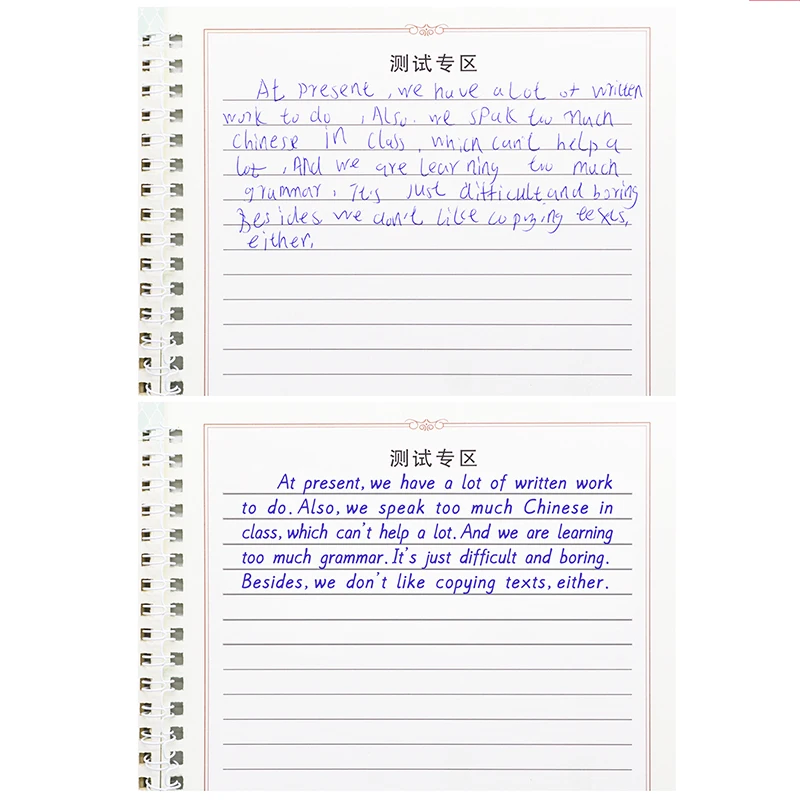 测试专区
At present, we have a lot of written
work to do , Also. we speak too much
Chinese in class, which can't help a
lot , And we are learning too much
grammar. It's just difficult and boring
Besides we don't like copying texts,
either.
测试专区
At present, we have a lot of written work
to do. Also, we speak too much Chinese in
class, which can't help a lot. And we are learning
too much grammar. It's just difficult and boring.
Besides, we don't like copying texts, either.